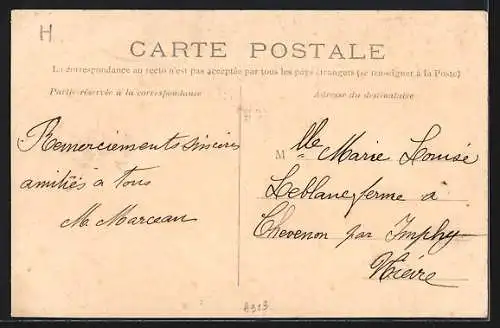 H
CARTE POSTALE
La correspondance au recto n'est pas acceptée par tous les pays étrangers (se renseigner à la Poste)
Partie réservée à la correspondance
Adresse du destinataire
Remerciements sincères
amitiés a tous
M. Marceau
Mlle Marie Louise
Leblanc, ferme a
Chevenon par Imphy
Nièvre
8313